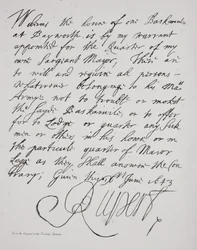 Whereas the house of one Barksdale
at Bayworth is by my warrant
appointed for the Quarter of my
own Sargiant Mayor, These are
to will and require all persons
whatsoever belonging to his Ma
Armies not to trouble or molest
the sayde Barksdale, or to offer
to Lodge or quarter any
men or others in his house or in
the particuler quarter of Mayor
Legge as they shall answere the Con
trary; Given this June 1643
Rupert